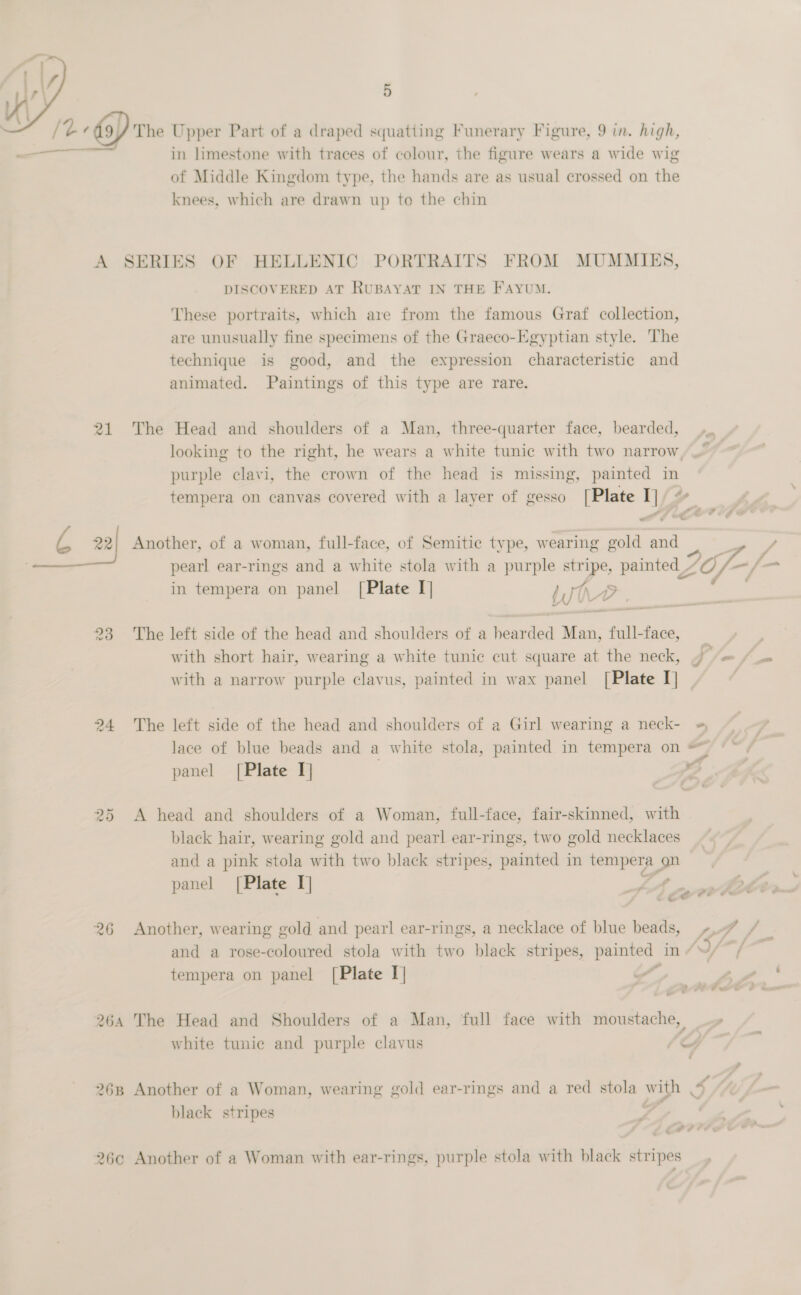 5
The Upper Part of a draped squatting Funerary Figure, 9 in. high,
in limestone with traces of colour, the figure wears a wide wig
of Middle Kingdom type, the hands are as usual crossed on the
knees, which are drawn up to the chin
A SERIES OF HELLENIC PORTRAITS FROM MUMMIES,
DISCOVERED AT RUBAYAT IN THE FAYUM.
These portraits, which are from the famous Graf collection,
are unusually fine specimens of the Graeco-Egyptian style. The
technique is good, and the expression characteristic and
animated. Paintings of this type are rare.
21 The Head and shoulders of a Man, three-quarter face, bearded,
looking to the right, he wears a white tunic with two narrow
purple clavi, the crown of the head is missing, painted in
tempera on canvas covered with a layer of gesso [Plate I]
22 Another, of a woman, full-face, of Semitic type, wearing gold and
pearl ear-rings and a white stola with a purple stripe, painted
in tempera on panel [Plate I]
23 The left side of the head and shoulders of a bearded Man, full-face,
with short hair, wearing a white tunic cut square at the neck,
with a narrow purple clavus, painted in wax panel [Plate I]
24 The left side of the head and shoulders of a Girl wearing a neck-
lace of blue beads and a white stola, painted in tempera on
panel [Plate I]
25 A head and shoulders of a Woman, full-face, fair-skinned, with
black hair, wearing gold and pearl ear-rings, two gold necklaces
and a pink stola with two black stripes, painted in tempera on
panel [Plate I]
26 Another, wearing gold and pearl ear-rings, a necklace of blue beads,
and a rose-coloured stola with two black stripes, painted in
tempera on panel [Plate I]
26A The Head and Shoulders of a Man, full face with moustache,
white tunic and purple clavus
26B Another of a Woman, wearing gold ear-rings and a red stola with
black stripes
26C Another of a Woman with ear-rings, purple stola with black stripes